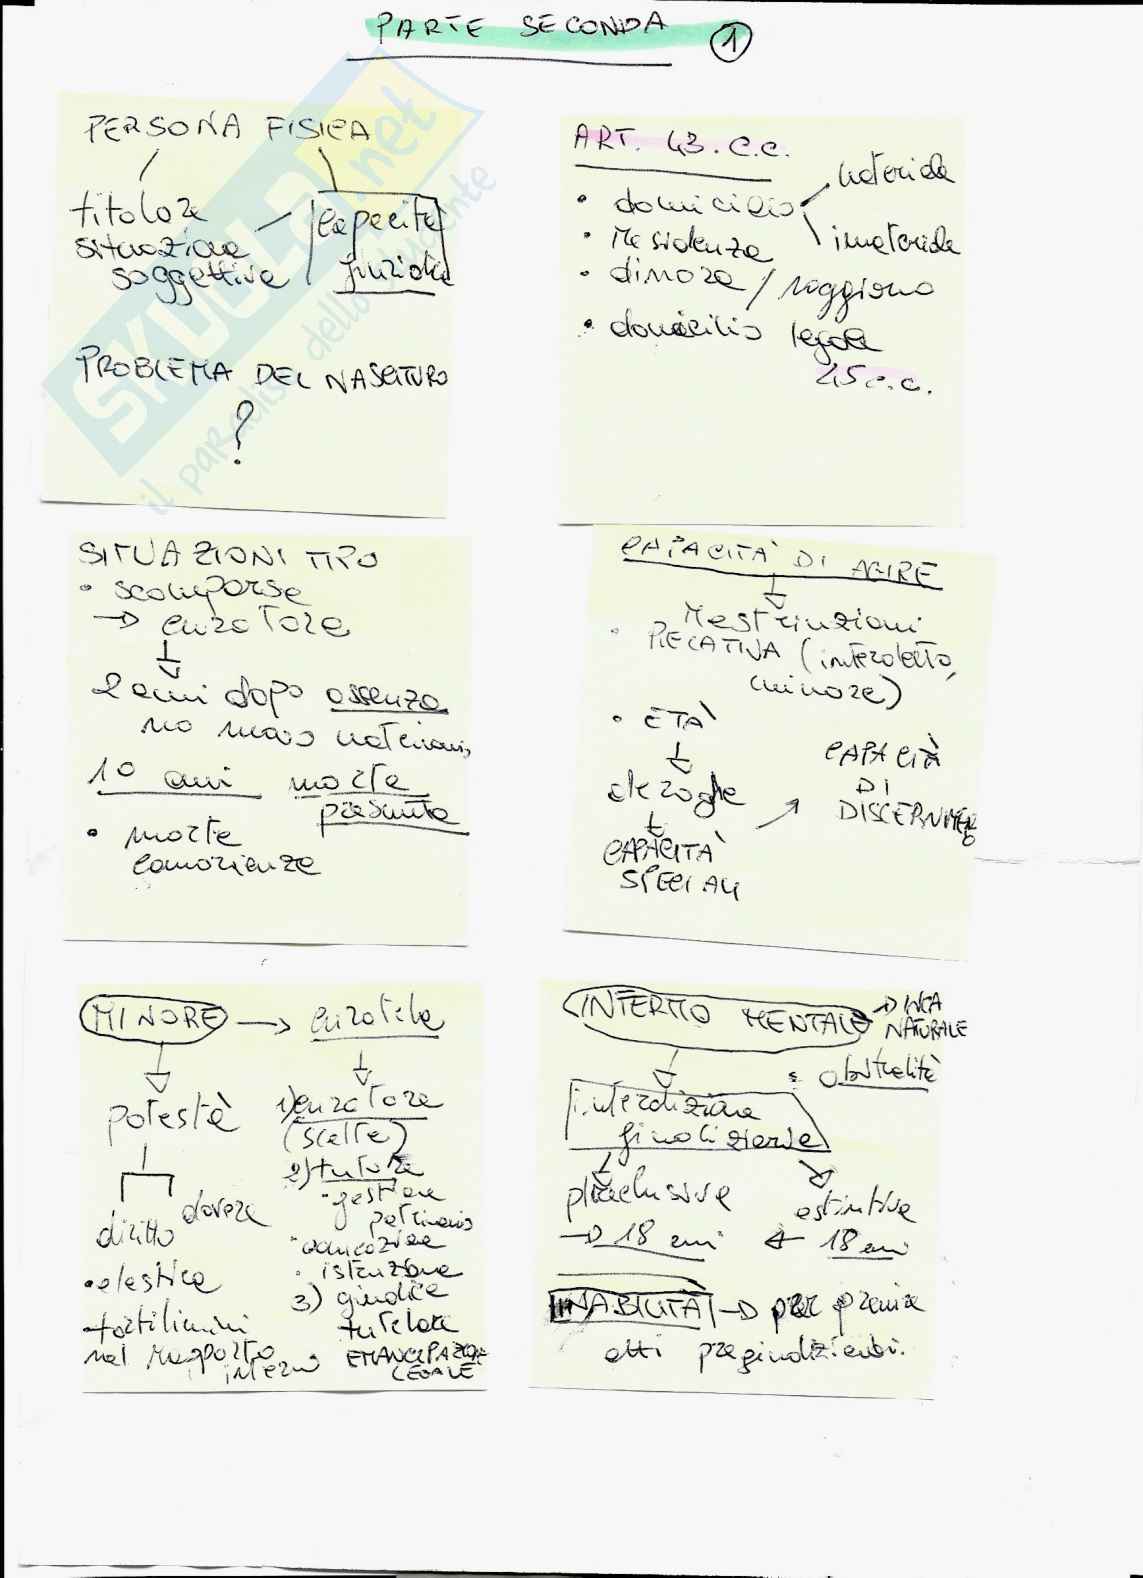 PARTE SECONDA 1
PERSONA FISICA
titolare
situazione
soggettive
capacità
giuridica
PROBLEMA DEL NASCITURO
?
ART. 43. C.C.
• domicilio
materiale
immateriale
• residenza
• dimora / soggiorno
• domicilio legale
45 c.c.
SITUAZIONI TIPO
• scomparse
→ curatore
2 anni dopo assenza
no
10 anni morte
presunta
• morte
comorienza
CAPACITÀ DI AGIRE
restrinzioni
• RELATIVA (interdetto,
minore)
• ETÀ
deroghe
CAPACITÀ
SPECIALI
CAPACITÀ
DI
DISCERNIMENTO
MINORE → curatela
potestà
diritto
dovere
• elastica
forti limini
nel rapporto
interno
1) curatore
(scelte)
2) tutore
• gestione
patrimonio
• educazione
• istruzione
3) giudice
tutelare
EMANCIPAZIONE
LEGALE
INFERMO MENTALE → INCA
NATURALE
• abitualità
interdizione
giudiziaria
preclusive
→ 18 anni
estintive
← 18 anni
INABILITÀ → per
atti pregiudizievoli.
SKUOLA.net
il paradiso dello studente